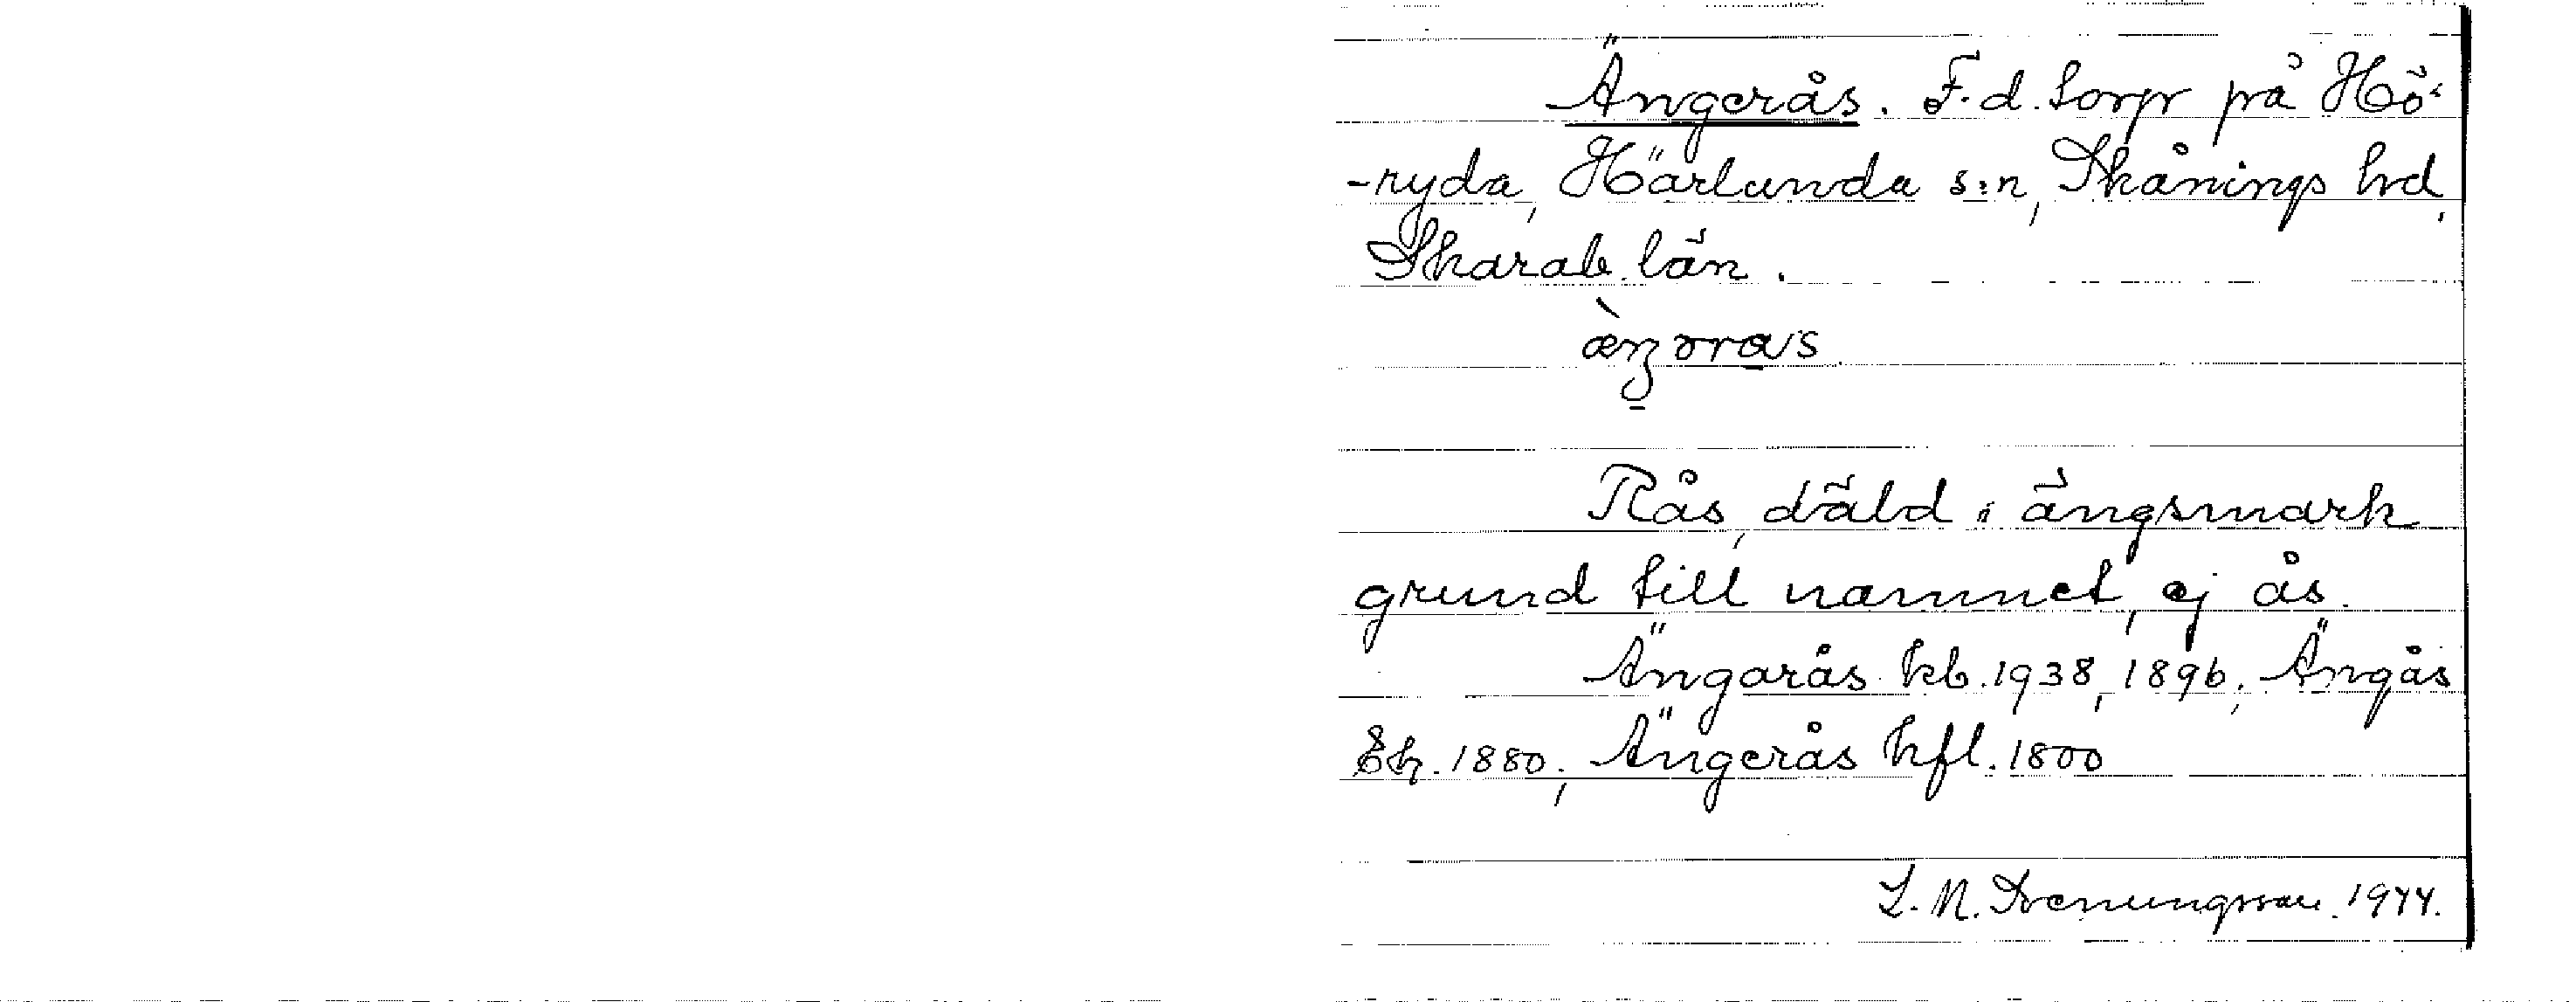 Ängerås. F.d. torp på Hö-
-ryda, Härlunda s:n, Skånings hd,
Skarab. län.
Rås, däld i ängsmark
grund till namnet, ej ås.
Ängarås kb. 1938, 1896; Ängås
Ek. 1880; Ängerås hfl. 1800
L. M. Svenungsson 1944.